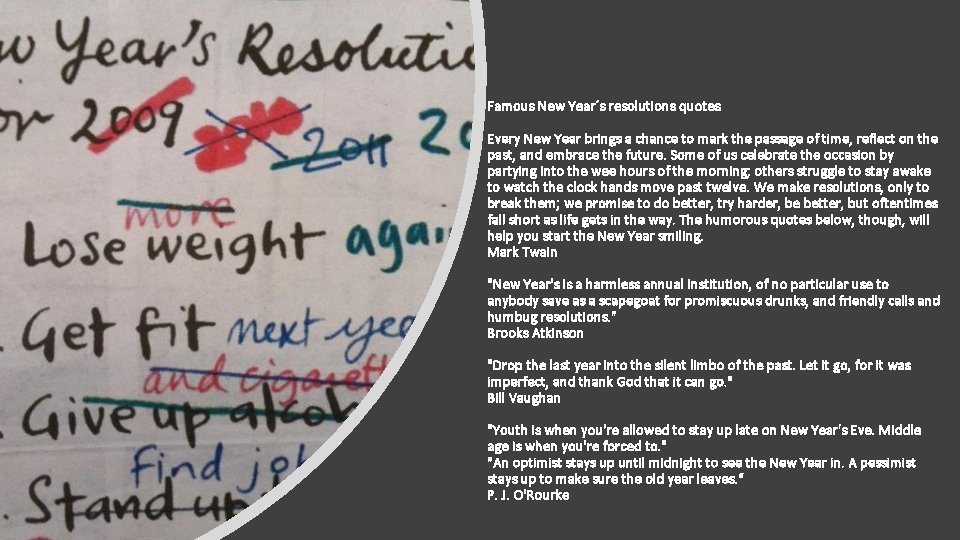 w Year's Resolutio
or 2009 2011 20
more
Lose weight again
Get fit next yea
and cigarett
Give up alcoh
find jo
Stand up
Famous New Year´s resolutions quotes
Every New Year brings a chance to mark the passage of time, reflect on the
past, and embrace the future. Some of us celebrate the occasion by
partying into the wee hours of the morning; others struggle to stay awake
to watch the clock hands move past twelve. We make resolutions, only to
break them; we promise to do better, try harder, be better, but oftentimes
fall short as life gets in the way. The humorous quotes below, though, will
help you start the New Year smiling.
Mark Twain
"New Year's is a harmless annual institution, of no particular use to
anybody save as a scapegoat for promiscuous drunks, and friendly calls and
humbug resolutions."
Brooks Atkinson
"Drop the last year into the silent limbo of the past. Let it go, for it was
imperfect, and thank God that it can go."
Bill Vaughan
"Youth is when you're allowed to stay up late on New Year's Eve. Middle
age is when you're forced to."
"An optimist stays up until midnight to see the New Year in. A pessimist
stays up to make sure the old year leaves."
P. J. O'Rourke